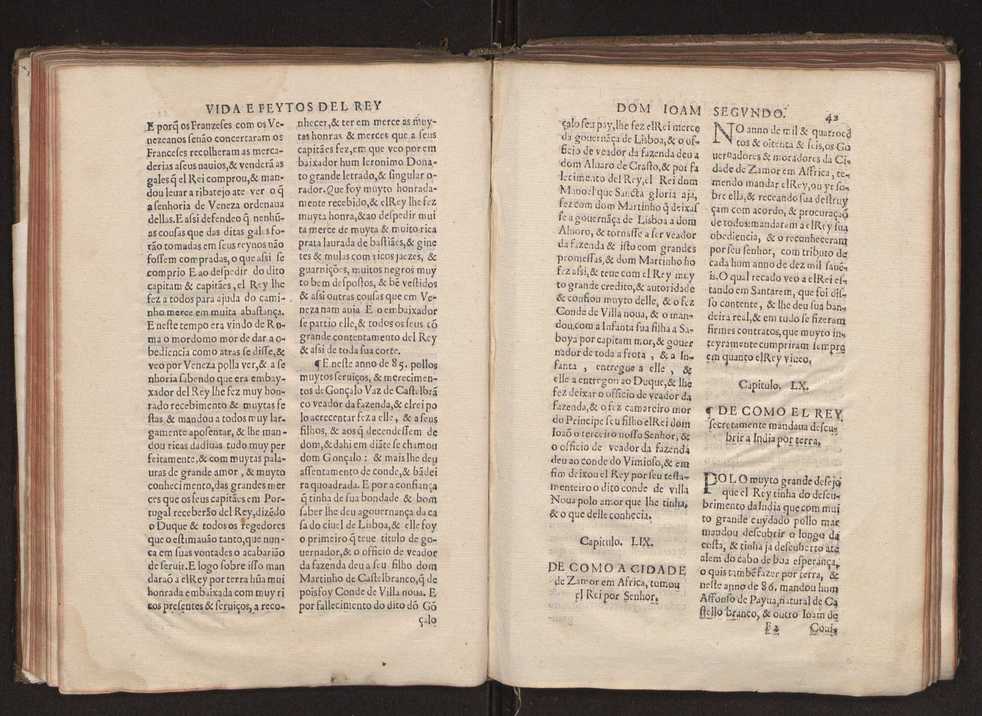 VIDA E FEYTOS DEL REY
E porq̃ os Franzeses com os Ve-
nezeanos senão concertaram os
Franceses recolheram as merca-
derias aseus nauios, & venderã as
gales q̃ el Rei comprou, & man-
dou leuar a ribatejo ate ver o q̃
a senhoria de Veneza ordenaua
dellas. E assi defendeo q̃ nenhũ-
as cousas que das ditas gales fo-
rão tomadas em seus reynos não
fossem compradas, o que assi se
comprio E ao despedir do dito
capitam & capitães, el Rey lhe
fez a todos para ajuda do cami-
nho merce em muita abastança.
E neste tempo era vindo de Ro-
ma o mordomo mor de dar a o-
bediencia como atras se disse, &
veo por Veneza polla ver, & a se
nhoria sabendo que era embay-
xador del Rey lhe fez muy hon-
rado recebimento & muytas fe
stas, & mandou a todos muy lar-
gamente aposentar, & lhe man-
dou ricas dadiuas tudo muy per
feitamente, & com muytas pala-
uras de grande amor, & muyto
conhecimento, das grandes mer
ces que os seus capitães em Por-
tugal receberão del Rey, dizẽdo
o Duque & todos os regedores
que o estimauão tanto, que nun-
ca em suas vontades o acabarião
de seruir. E logo sobre isso man
darão a elRey por terra hũa mui
honrada embaixada com muy ri
cos presentes & seruiços, a reco-
nhecer, & ter em merce as muy-
tas honras & merces que a seus
capitães fez, em que veo por em
baixador hum Ieronimo Dona-
to grande letrado, & singular o-
rador. Que foy muyto honrada-
mente recebido, & elRey lhe fez
muyta honra, & ao despedir mui
ta merce de muyta & muito rica
prata laurada de bastiães, & gine
tes & mulas com ricos jaezes, &
guarnições, muitos negros muy
to bem despostos, & bẽ vestidos
& assi outras cousas que em Ve-
neza nam auia E o embaixador
se partio elle, & todos os seus cõ
grande contentamento del Rey
& assi de toda sua corte.
¶ E neste anno de 85. pollos
muytos seruiços, & merecimen-
tos de Gonçalo Vaz de Castelbrã
co veador da fazenda, & elrei po
lo acrecentar fez a elle, & a seus
filhos, & aos q̃ decendessem de
dom, & dahi em diãte se chamou
dom Gonçalo: & mais lhe deu
assentamento de conde, & bãdei
ra quoadrada. E por a confiança
q̃ tinha de sua bondade & bom
saber lhe deu agouernança da ca
sa do ciuel de Lisboa, & elle foy
o primeiro q̃ teue titulo de go-
uernador, & o officio de veador
da fazenda deu a seu filho dom
Martinho de Castelbranco, q̃ de
pois foy Conde de Villa noua. E
por fallecimento do dito dõ Gõ
çalo
DOM IOAM SEGVNDO. 42
çalo seu pay, lhe fez elRei merce
da gouernãça de Lisboa, & o of-
ficio de veador da fazenda deu a
dom Aluaro de Crasto, & por fa
lecimento del Rey, el Rei dom
Manoel que Sancta gloria aja,
fez com dom Martinho q̃ deixas
se a gouernãça de Lisboa a dom
Aluoro, & tornasse a ser veador
da fazenda & isto com grandes
promessas, & dom Martinho ho
fez assi, & teue com el Rey muy
to grande credito, & autoridade
& confiou muyto delle, & o fez
Conde de Villa noua, & o man-
dou com a Infanta sua filha a Sa-
boya por capitam mor, & gouer
nador de toda a frota, & a In-
fanta, entregue a elle, &
elle a entregou ao Duque, & lhe
fez deixar o officio de veador da
fazenda, & o fez camareiro mor
do Principe seu filho elRei dom
Ioaõ o terceiro nosso Senhor, &
o officio de veador da fazenda
deu ao conde do Vimioso, & em
fim deixou el Rey por seu testa-
menteiro o dito conde de villa
Noua polo amor que lhe tinha,
& o que delle conhecia.
Capitulo. LIX.
DE COMO A CIDADE
de Zamor em Africa, tomou
el Rei por Senhor.
NO anno de mil & quatrocẽ
tos & oitenta & seis, os Go
uernadores & moradores da Ci-
dade de Zamor em Affrica, te-
mendo mandar elRey, ou yr so-
bre ella, & receando sua destruy
çam com acordo, & procuraçaõ
de todos mandaram a elRey sua
obediencia, & o reconheceram
por seu senhor, com tributo de
cada hum anno de dez mil saue-
is. O qual recado veo a elRei es-
tando em Santarem, que foi dis-
so contente, & lhe deu sua ban-
deira real, & em tudo se fizeram
firmes contratos, que muyto in-
teyramente cumpriram sempre
em quanto elRey viueo.
Capitulo. LX.
¶ DE COMO EL REY
secretamente mandaua descu-
brir a India por terra.
POLO muyto grande desejo
que el Rey tinha do descu-
brimento da India que com mui
to grande cuydado pollo mar
mandou descubrir o longo da
costa, & tinha ja descuberto ate
alem do cabo de boa esperança,
o quis tambẽ fazer por terra, &
neste anno de 86. mandou hum
Affonso de Payua, natural de Ca
stello branco, & outro Ioam de
F2 Coui-